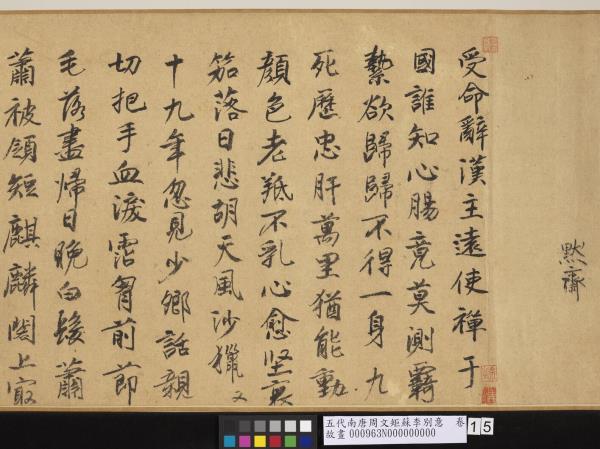 默齋
受命辭漢主遠使禪于
國誰知心腸竟莫測羈
縶欲歸歸不得一身九
死歷忠肝萬里猶能動
顏色老羝不乳心愈堅哀
笳落日悲胡天風沙獵又
十九年忽見少卿話親
切把手血淚沾胷前節
毛落盡歸日晚白髮蕭
蕭被領短麒麟閣上寂
五代南唐周文矩蘇李別意 卷
故畫 000963N000000000
15